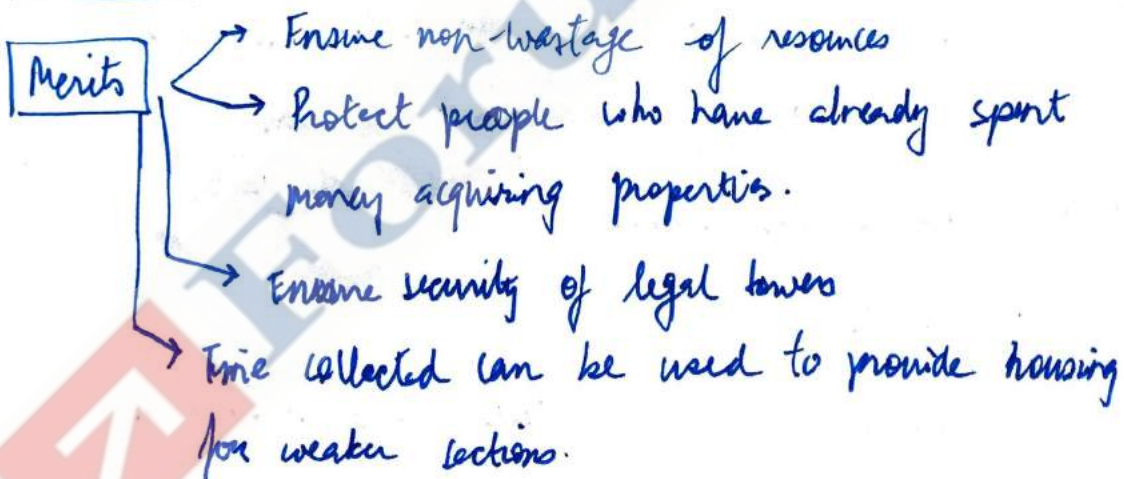 Merits
Ensure non-wastage of resources
Protect people who have already spent
money acquiring properties.
Ensure security of legal towers
Fine collected can be used to provide housing
for weaker sections.
Foru